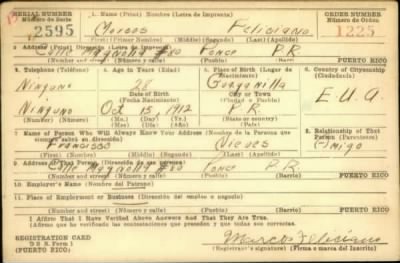 SERIAL NUMBER 1. NAME (Print) Nombre (Letra de Imprenta) ORDER NUMBER
Número de Serie Número de Orden
2595 Marcos Feliciano 1225
(First) (Primer Nombre) (Middle) (Segundo) (Last) (Apellido)
2. Address (Print) Dirección (Letra de Imprenta)
Calle Magnolia #80 Ponce P.R.
(Number and street) (Número y calle) (Town) (Pueblo) PUERTO RICO
3. Telephone (Teléfono) 4. Age in Years (Edad) 5. Place of Birth (Lugar de Nacimiento) 6. Country of Citizenship (Ciudadanía)
Ninguno 28
Date of Birth (Fecha Nacimiento) City or Town (Ciudad o Pueblo)
Ninguno Oct 15, 1912 P.R. E.U.A.
(Number) (Número) (Mo.) (Day) (Yr.) (State or country)
7. Name of Person Who Will Always Know Your Address (Nombre de la Persona que siempre sabrá su dirección) 8. Relationship of That Person (Parentesco)
Nieves Amigo
(First) (Nombre) (Middle) (Segundo) (Last) (Apellido)
9. Address of That Person (Dirección de esa persona)
Calle Magnolia #80 Ponce P.R.
(Number and street) (Número y calle) (Town) (Pueblo) PUERTO RICO
10. Employer's Name (Nombre del Patrono)
11. Place of Employment or Business (Dirección del empleo o negocio)
(Number and street) (Número y calle) (Town) (Pueblo) PUERTO RICO
I Affirm That I Have Verified Above Answers And That They Are True.
(Afirmo que he verificado las contestaciones que preceden y que todas son correctas.
REGISTRATION CARD
D S S. Form 1
(PUERTO RICO)
Marcos Feliciano
(Registrant's signature) (Firma o marca del Inscrito)